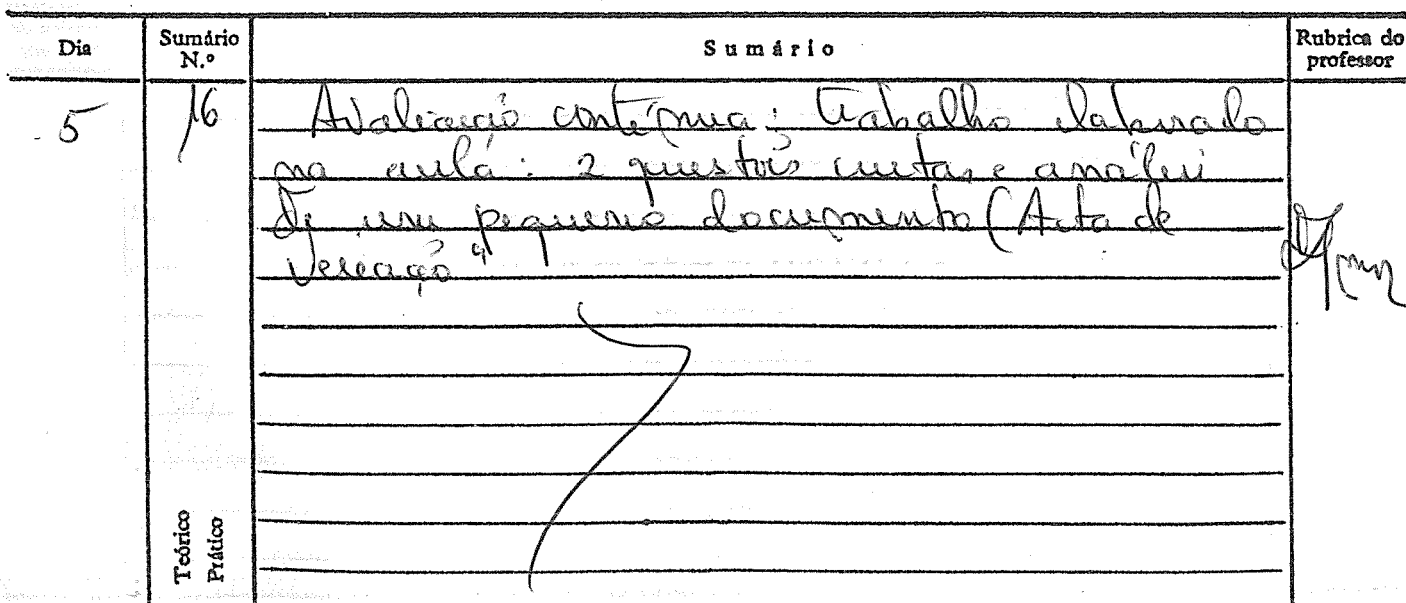 Dia
Sumário N.º
Sumário
Rubrica do professor
5
16
Avaliação contínua: trabalho elaborado
na aula: 2 questões curtas e análise
de um pequeno documento (Acta de
Vereação"
Teórico
Prático